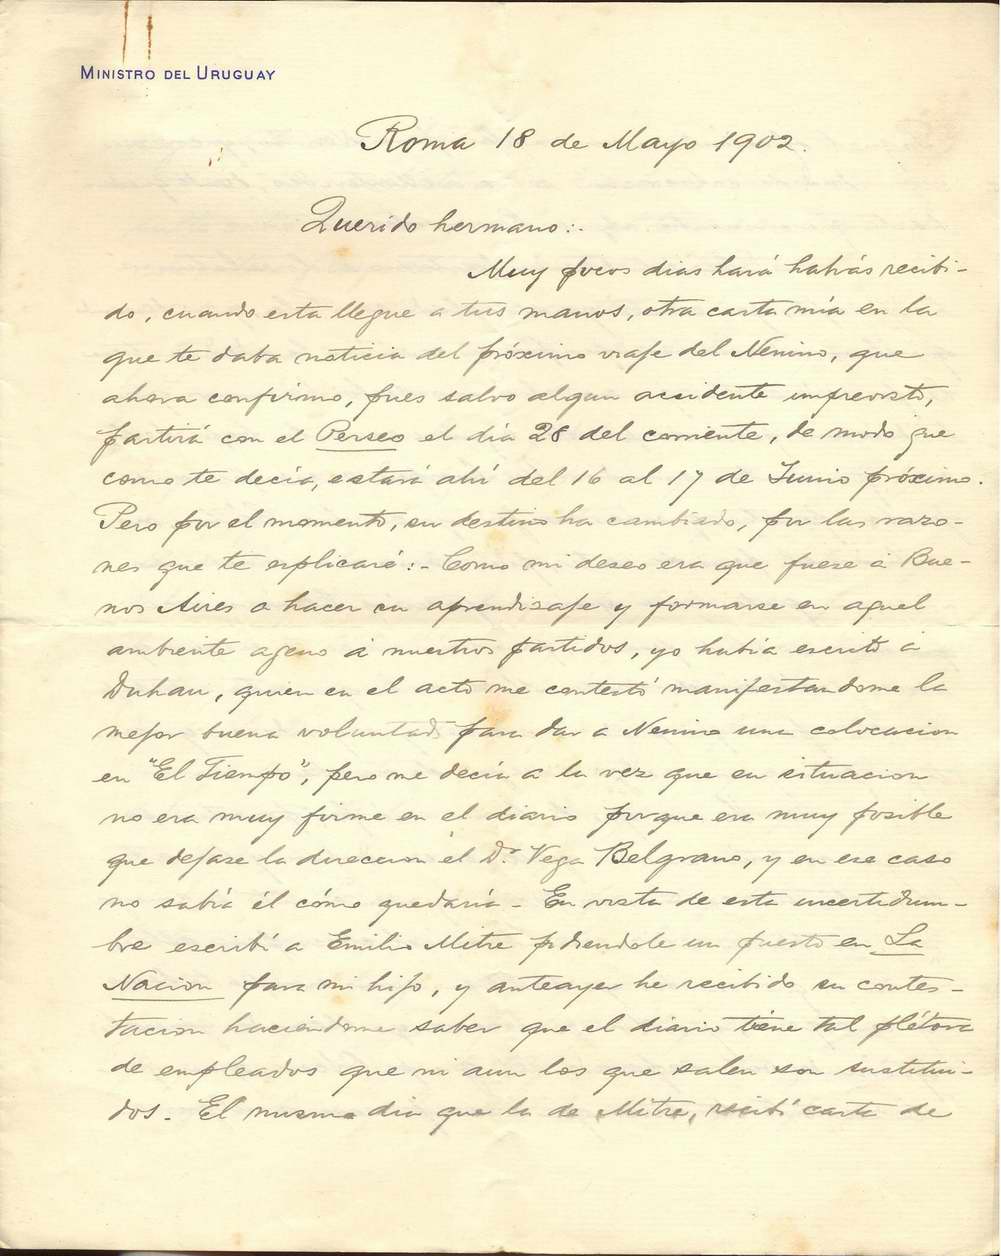 MINISTRO DEL URUGUAY
Roma 18 de Mayo 1902.
Querido hermano:.
Muy pocos dias hará habrás recibi-
do, cuando esta llegue a tus manos, otra carta mía en la
que te daba noticia del próximo viaje del Nenino, que
ahora confirmo, pues salvo algun accidente imprevisto,
partirá con el Perseo el día 28 del corriente, de modo que
como te decía, estará ahí del 16 al 17 de Junio próximo.
Pero por el momento, su destino ha cambiado, por las razo-
nes que te esplicaré:- Como mi deseo era que fuese á Bue-
nos Aires a hacer su aprendizaje y formarse en aquel
ambiente ageno á nuestros partidos, yo había escrito á
Duhau, quien en el acto me contestó manifestandome la
mejor buena voluntad para dar a Nenino una colocacion
en "El Tiempo", pero me decía a la vez que su situacion
no era muy firme en el diario porque era muy posible
que dejase la direccion el Dr. Vega Belgrano, y en ese caso
no sabía él cómo quedaría - En vista de esta incertidum-
bre escribí a Emilio Mitre pidiendole un puesto en La
Nacion para mi hijo, y anteayer he recibido su contes-
tacion haciendome saber que el diario tiene tal plétora
de empleados que ni aun los que salen son sustitui-
dos. El mismo dia que la de Mitre, recibí carta de